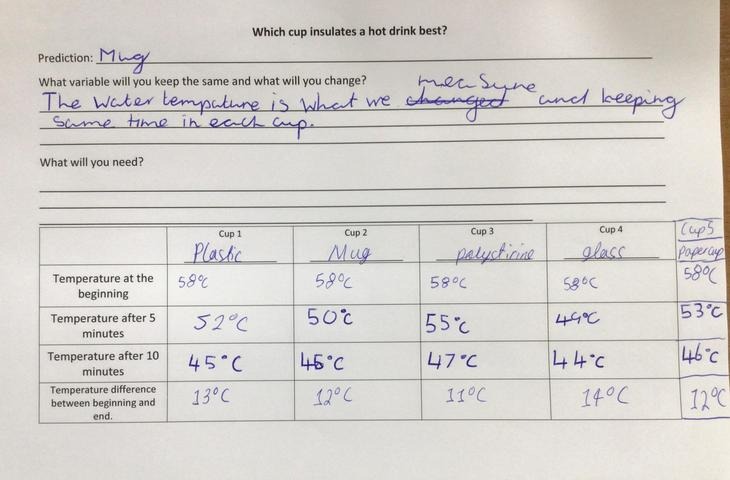 Which cup insulates a hot drink best?
Prediction: Mug
What variable will you keep the same and what will you change?
measure
The water tempature is what we changed and keeping
same time in each cup.
What will you need?
Cup 1 Cup 2 Cup 3 Cup 4 Cup5
Plastic Mug polystirine glass Papercup
Temperature at the beginning 58°C 58°C 58°C 58°C 58°C
Temperature after 5 minutes 52°C 50°C 55°C 49°C 53°C
Temperature after 10 minutes 45°C 46°C 47°C 44°C 46°C
Temperature difference between beginning and end. 13°C 12°C 11°C 14°C 12°C